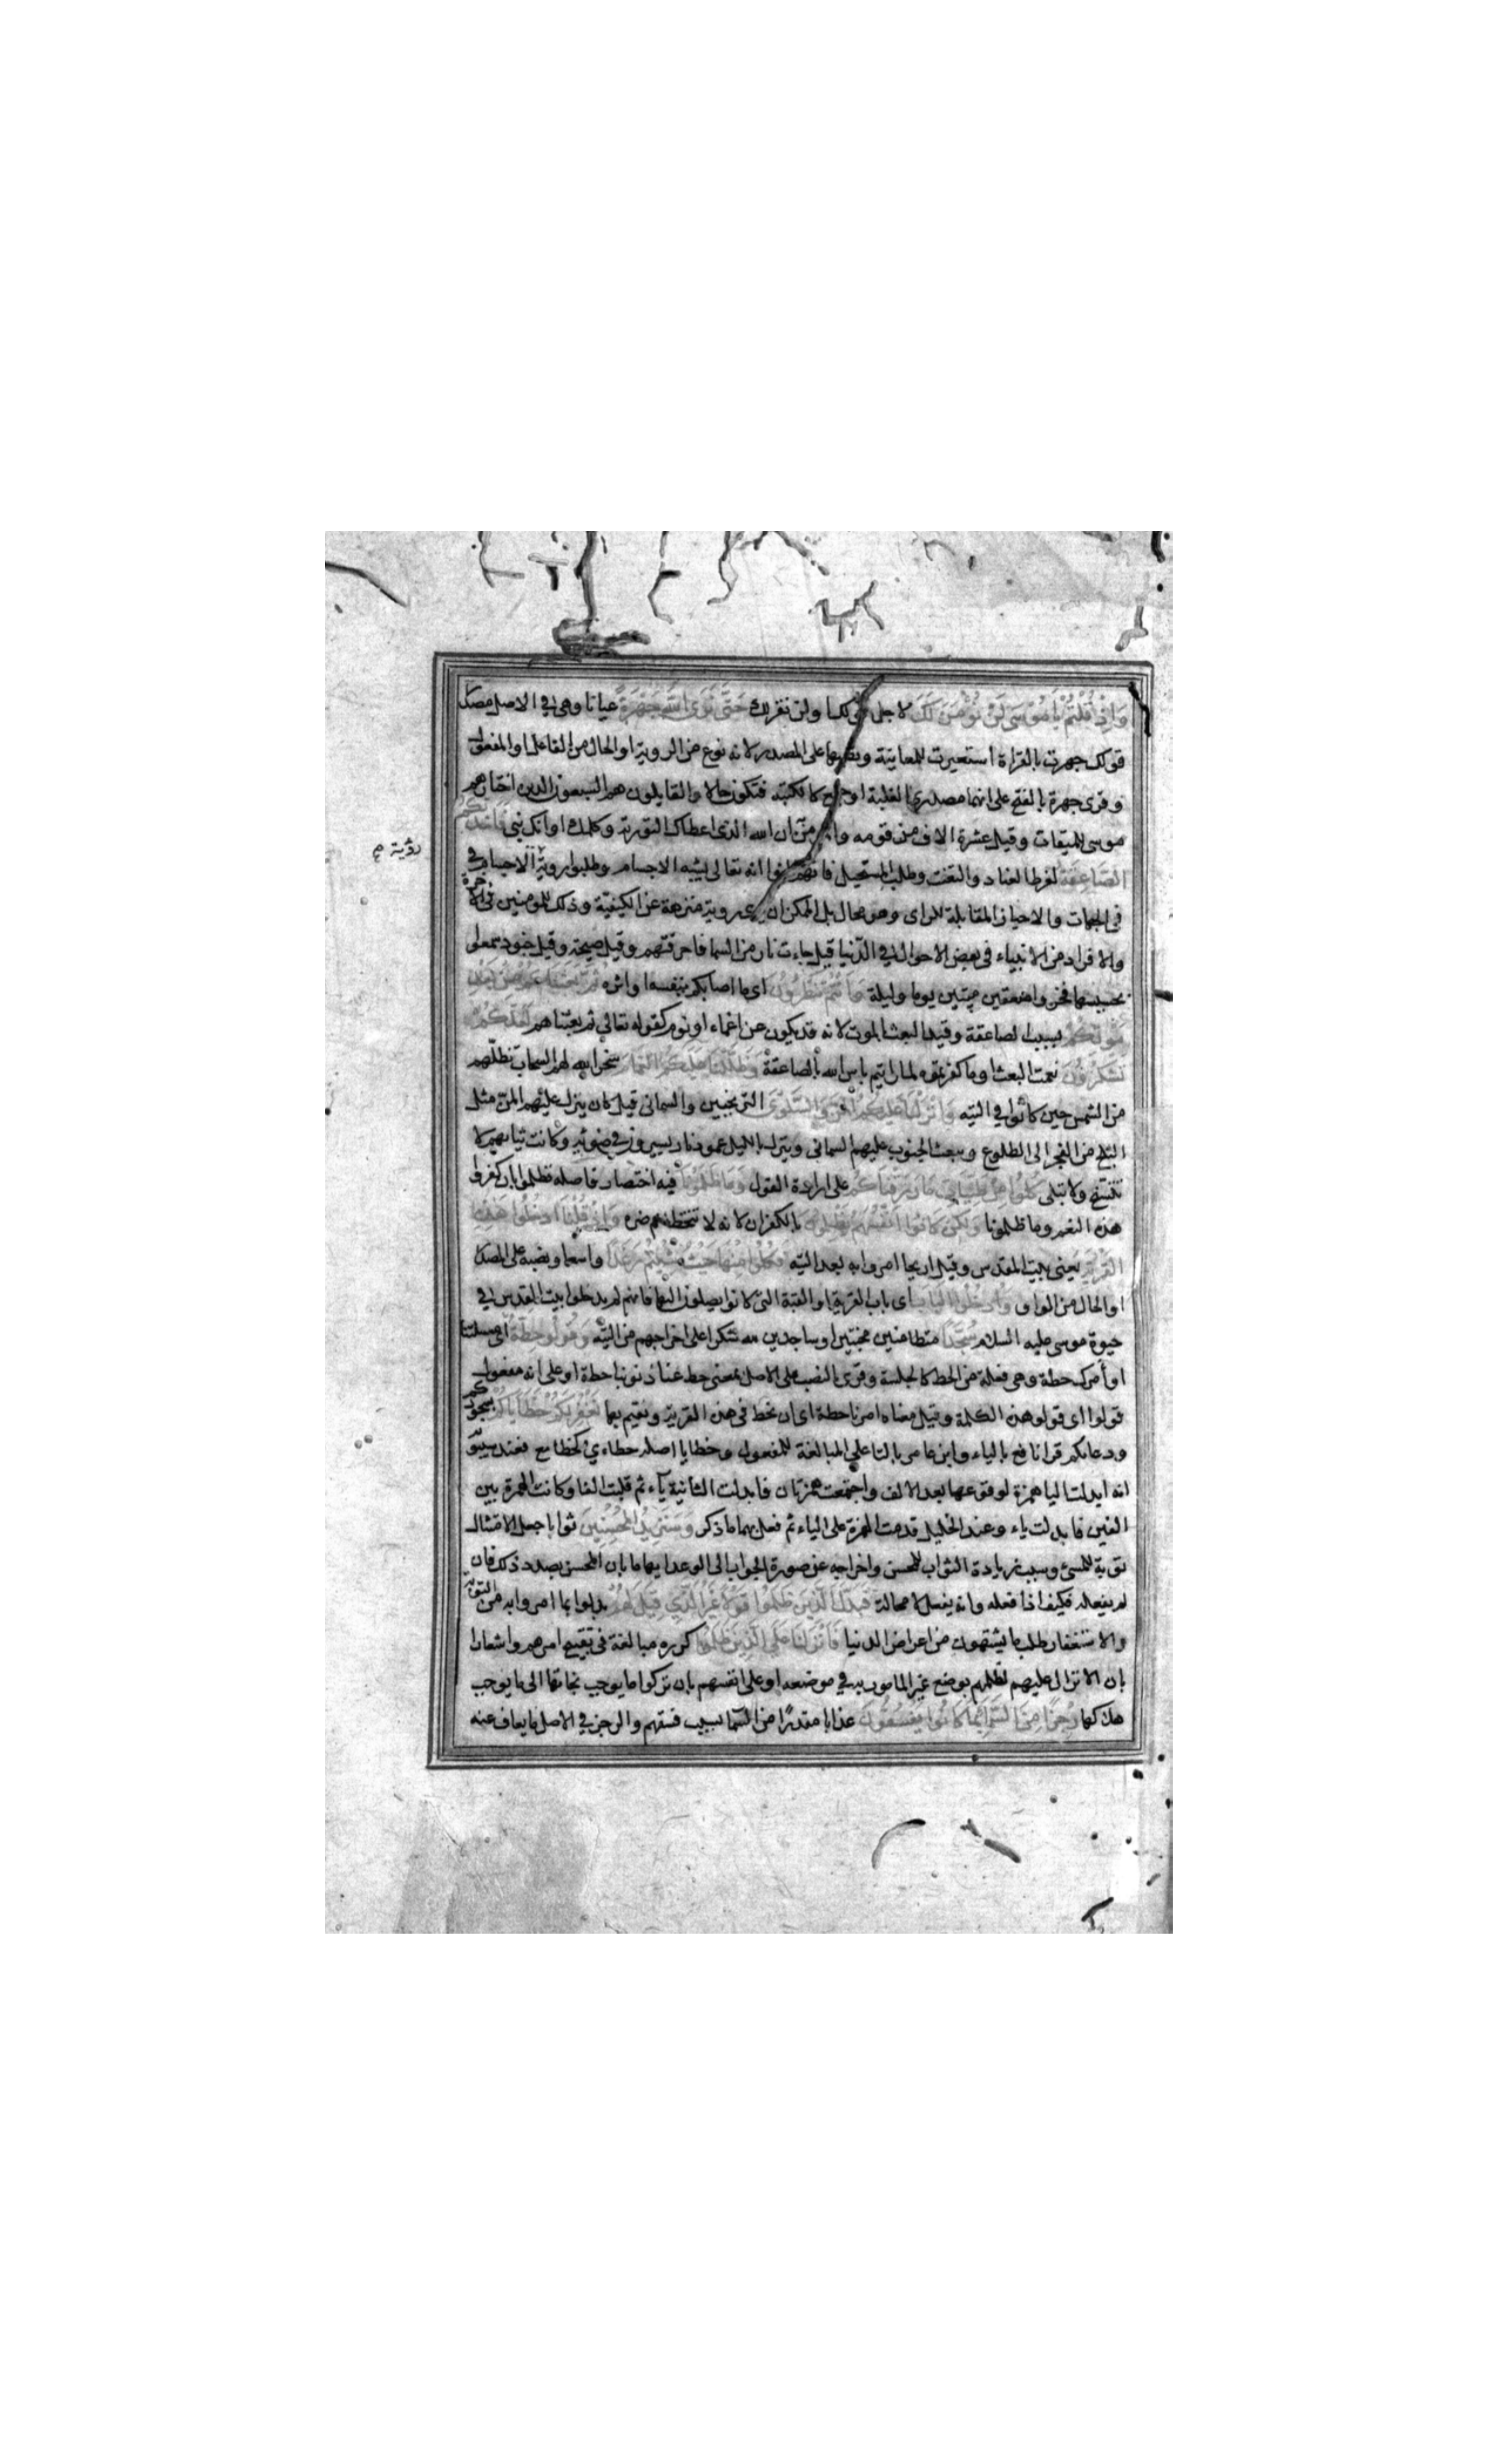 وَاِذْ قُلْتُمْ يَا مُوسَى لَنْ نُؤْمِنَ لَكَ لاجل قولك اولن نقر لك حَتَّى نَرَى اللهَ جَهْرَةً عيانا وهى فى الاصل مصدر
قولك جهرت بالقراءة استعيرت للمعاينة ونصبها على المصدر لانه نوع من الروية اوالحال من الفاعل اوالمفعول
وقرى جهرة بالفتح على انها مصدر كالغلبة اوجمع كالكتبة فتكون حالا والقايلون هم السبعون الذين اختارهم
موسى للميقات وقيل عشرة الاف من قومه والمؤمن ان الله الذى اعطاك التورية وكلمك اوانك نبى فَاَخَذَتْكُمُ
الصَّاعِقَةُ لفرط العناد والتعنت وطلب المستحيل فانهم ظنوا انه تعالى يشبه الاجسام وطلبوا روية الاجسام
رؤية صح
فى الجهات والاحياز المقابلة للراى وهو محال بل الممكن ان يرى روية منزهة عن الكيفية وذلك للمومنين فى الاخرة
والافراد من الانبياء فى بعض الاحوال فى الدنيا قيل جاءت نار من السما فاحرقتهم وقيل صيحة وقيل جنود سمعوا
بحسيسها فخروا صعقين ميتين يوما وليلة وَاَنْتُمْ تَنْظُرُونَ اى ما اصابكم بنفسه او اثره ثُمَّ بَعَثْنَاكُمْ مِنْ بَعْدِ
مَوْتِكُمْ بسبب الصاعقة وقيد البعث بالموت لانه قد يكون عن اغماء او نوم كقوله تعالى ثم بعثناهم لَعَلَّكُمْ
تَشْكُرُونَ نعمت البعث او ما كفرتموه لما رايتم باس الله بالصاعقة وَظَلَّلْنَا عَلَيْكُمُ الْغَمَامَ سخر الله لهم السحاب تظلهم
من الشمس حين كانوا فى التيه وَاَنْزَلْنَا عَلَيْكُمُ الْمَنَّ وَالسَّلْوَى الترنجبين والسمانى قيل كان ينزل عليهم المن مثل
الثلج من الفجر الى الطلوع ويبعث الجنوب عليهم السمانى وينزل بالليل عمود نار يسيرون فى ضوئه وكانت ثيابهم لا
تتسخ ولا تبلى كُلُوا مِنْ طَيِّبَاتِ مَا رَزَقْنَاكُمْ على ارادة القول وَمَا ظَلَمُونَا فيه اختصار فاصله فظلموا بان كفروا
هذه النعم وما ظلمونا وَلَكِنْ كَانُوا اَنْفُسَهُمْ يَظْلِمُونَ بالكفران لانه لا تتخطاهم ضره وَاِذْ قُلْنَا ادْخُلُوا هَذِهِ
الْقَرْيَةَ يعنى بيت المقدس وقيل اريحا امروا به بعد التيه فَكُلُوا مِنْهَا حَيْثُ شِئْتُمْ رَغَدًا واسعا ونصبه على المصدر
اوالحال من الواو وَادْخُلُوا الْبَابَ اى باب القرية او القبة التى كانوا يصلون اليها فانهم لم يدخلوا بيت المقدس فى
حيوة موسى عليه السلام سُجَّدًا متطامنين مخبتين او ساجدين لله شكرا على اخراجهم من التيه وَقُولُوا حِطَّةٌ اى مسئلتنا
اوامرك حطة وهى فعلة من الحط كالجلسة وقرى بالنصب على الاصل بمعنى حط عنا ذنوبنا حطة او على انه مفعول
قولوا اى قولوا هذه الكلمة وقيل معناه امرنا حطة اى ان نحط فى هذه القرية ونقيم بها نَغْفِرْ لَكُمْ خَطَايَاكُمْ بسجودكم
ودعائكم قرا نافع بالياء وابن عامر بالتا على البنا للمفعول وخطايا اصله خطايئ كخطايع فعند سيبويه
انه ابدلت اليا همزة لوقوعها بعد الالف واجتمعت همزتان فابدلت الثانية ياء ثم قلبت الفا وكانت الهمزة بين
الفين فابدلت ياء وعند الخليل قدمت الهمزة على الياء ثم فعل بهما ما ذكر وَسَنَزِيدُ الْمُحْسِنِينَ ثوابا جعل الامتثال
توبة للمسئ وسبب زيادة الثواب للمحسن واخراجه عن صورة الجواب الى الوعد ايهاما بان المحسن بصدد ذلك فان
لم يفعله فكيف اذا فعله وانه يفعل لا محالة فَبَدَّلَ الَّذِينَ ظَلَمُوا قَوْلًا غَيْرَ الَّذِي قِيلَ لَهُمْ بدلوا بما امروا به من التوبة
والاستغفار طلب ما يشتهون من اعراض الدنيا فَاَنْزَلْنَا عَلَى الَّذِينَ ظَلَمُوا كرره مبالغة فى تقبيح امرهم واشعارا
بان الانزال عليهم لظلمهم بوضع غير المامور به فى موضعه او على انفسهم بان تركوا ما يوجب نجاتها الى ما يوجب
هلاكها رِجْزًا مِنَ السَّمَاءِ بِمَا كَانُوا يَفْسُقُونَ عذابا مقدرا من السما بسبب فسقهم والرجز فى الاصل ما يعاف عنه